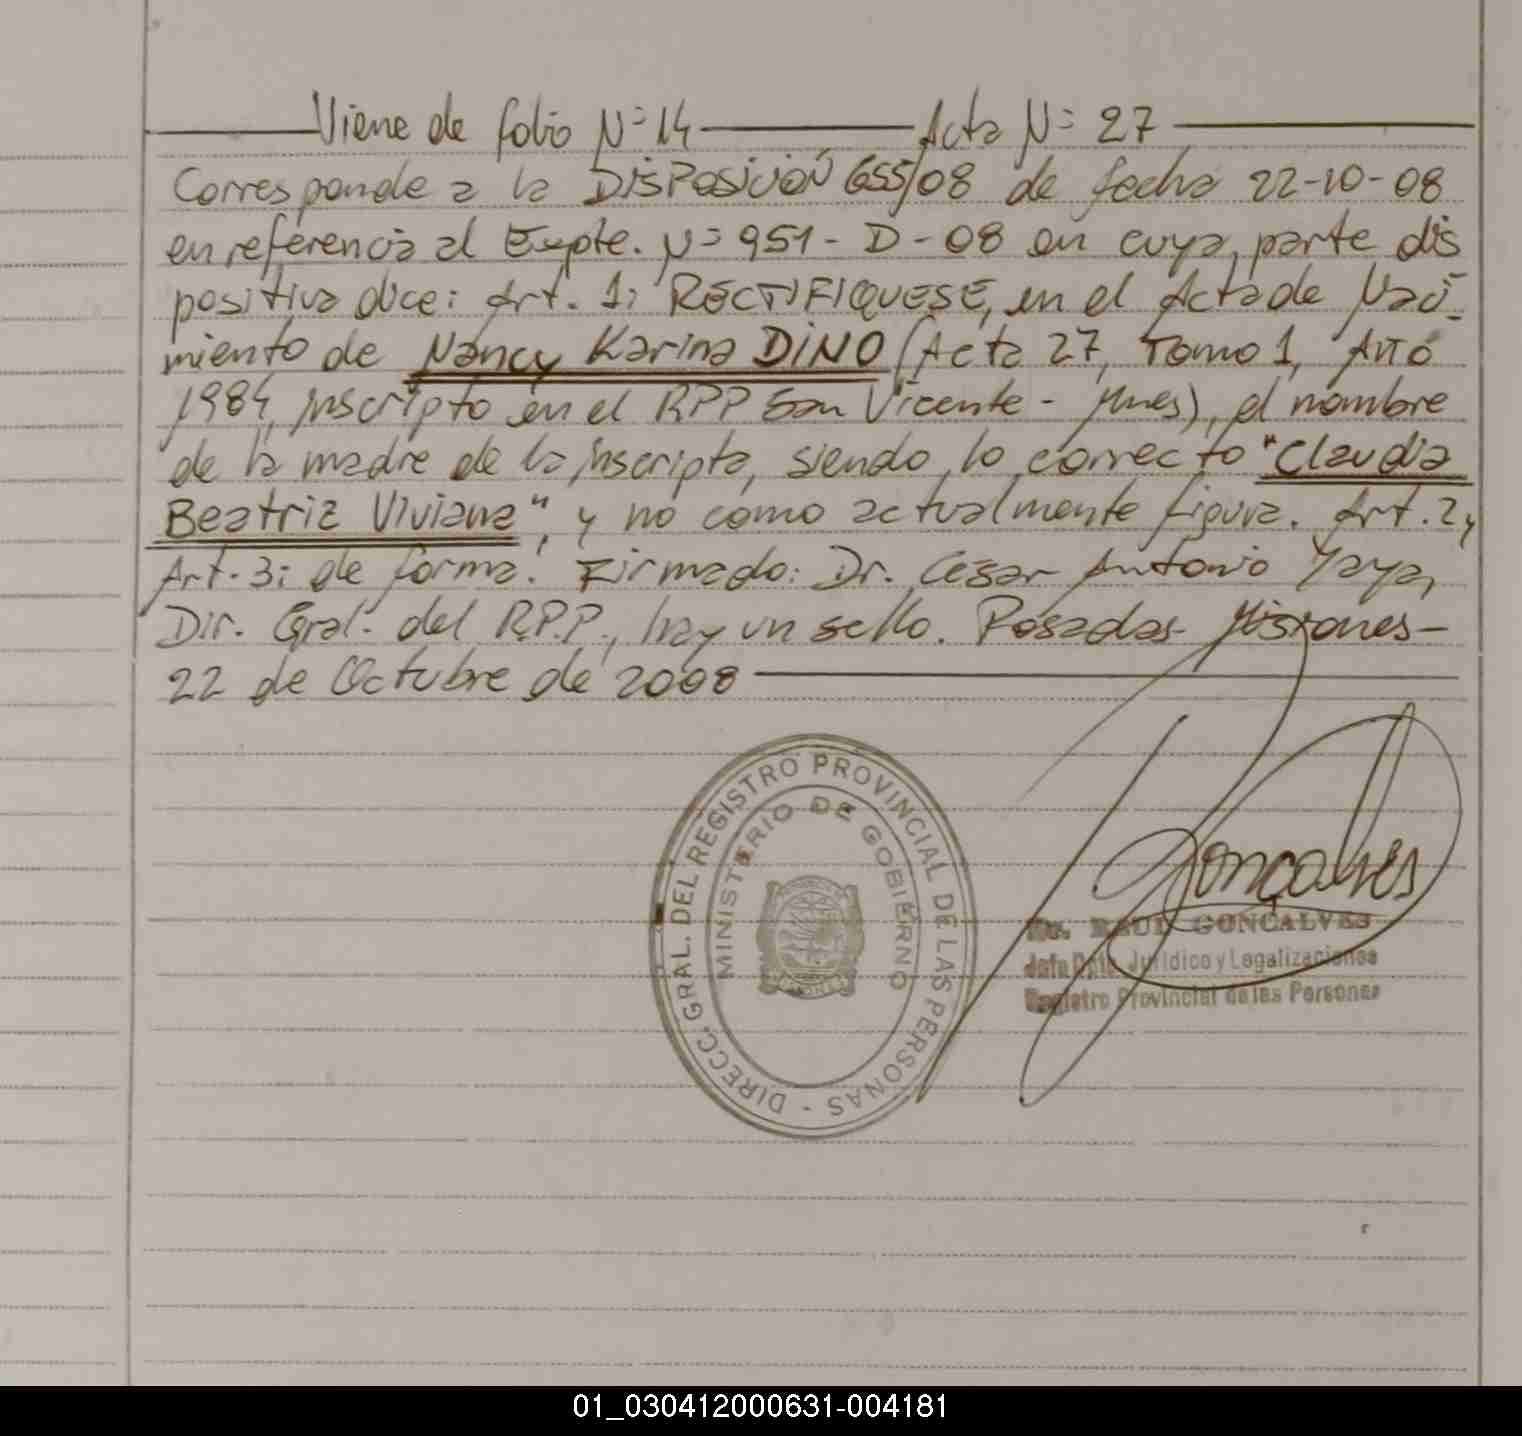 Viene de folio Nº 14 Acta Nº 27
Corresponde a la DISPOSICIÓN 655/08 de fecha 22-10-08
en referencia al Expte. Nº 951-D-08 en cuya parte dis
positiva dice: Art. 1: RECTIFIQUESE, en el Acta de Naci-
miento de Nancy Karina DINO (Acta 27, Tomo 1, Año
1984, inscripto en el RPP San Vicente - Mnes), el nombre
de la madre de la inscripta, siendo lo correcto "Claudia
Beatriz Viviana", y no como actualmente figura. Art. 2 y
Art. 3: de forma. Firmado: Dr. Cesar Antonio Yaya,
Dir. Gral. del R.P.P., hay un sello. Posadas Misiones-
22 de Octubre de 2008
DIRECC. GRAL. DEL REGISTRO PROVINCIAL DE LAS PERSONAS -
MINISTERIO DE GOBIERNO
MISIONES
Goncalves
Dr. RAUL GONCALVES
Jefe Dpto. Jurídico y Legalizaciones
Registro Provincial de las Personas
01_030412000631-004181